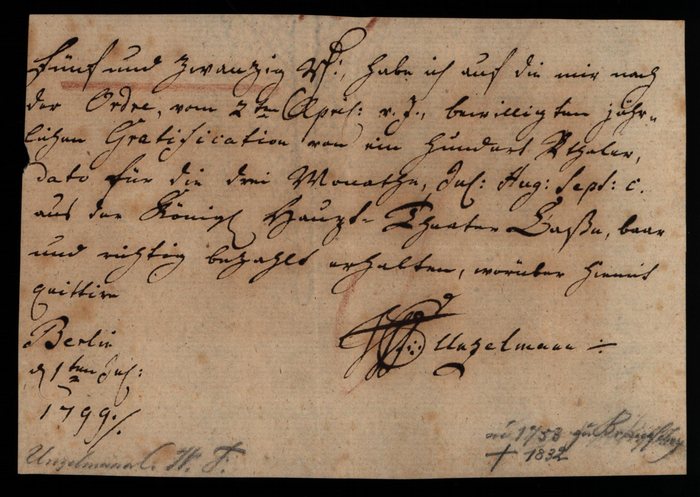 Fünf und zwanzig Rth:, habe ich auf die mir nach
der Ordre, vom 2ten April: v. J., bewilligten jähr-
lichen Gratification von ein Hundert Rthaler,
dato für die drei Monathe, Jul: Aug: Sept: c.
aus der Königl Haupt-Theater Casse, baar
und richtig bezahlt erhalten, worüber hiermit
quittire
Berlin
d 1ten Jul:
1799./.
Unzelmann
1758 zu
† 1832
Unzelmann C. W. F.